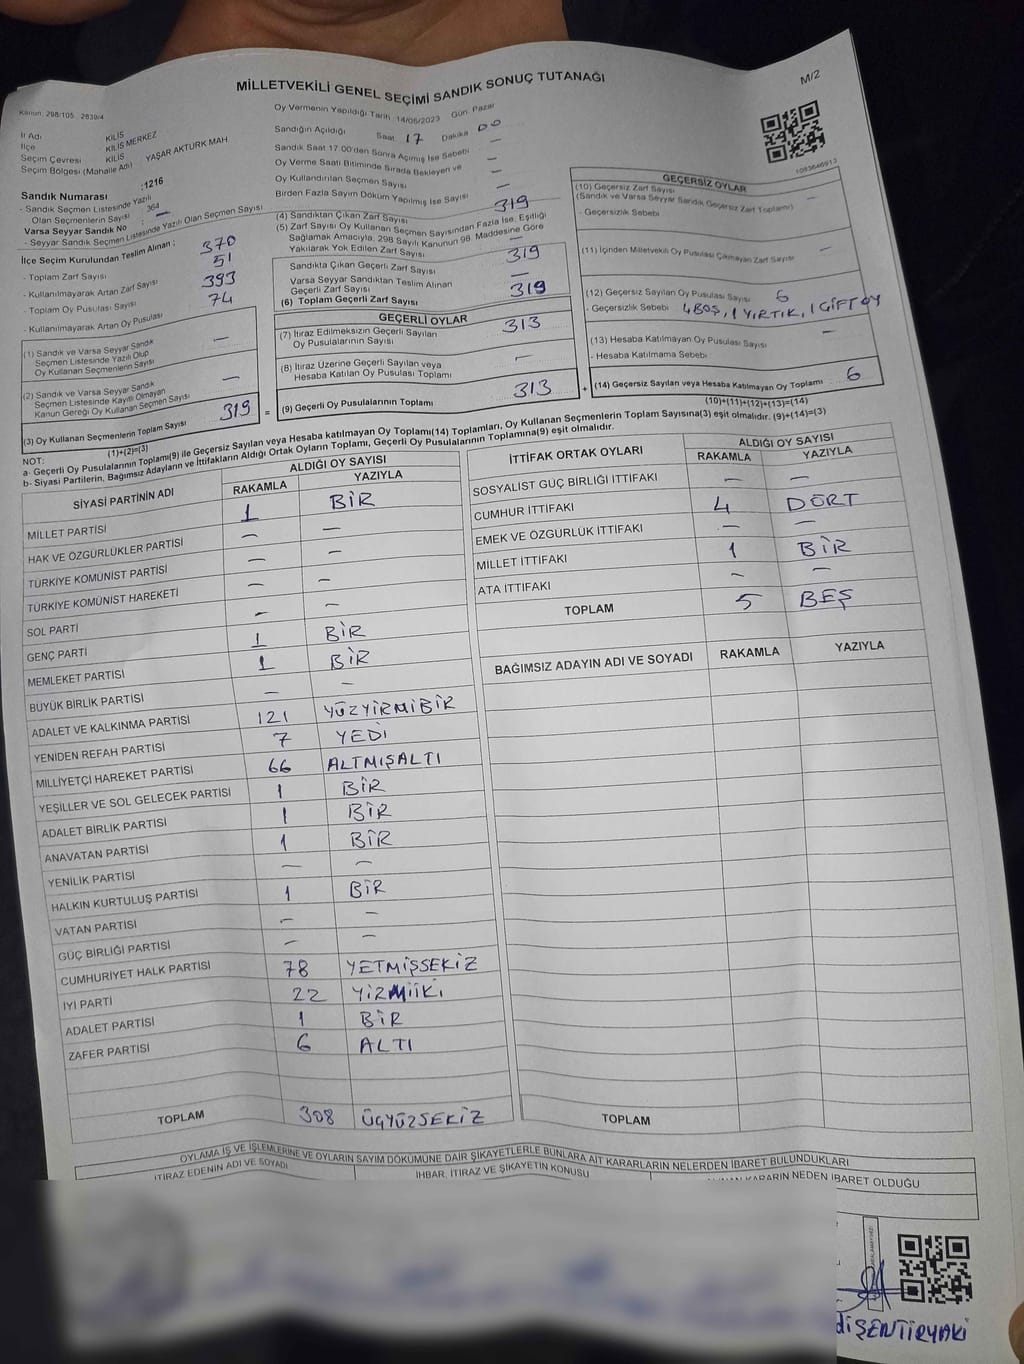 MİLLETVEKİLİ GENEL SEÇİMİ SANDIK SONUÇ TUTANAĞI
M/2
Kanun: 298/105 2839/4
Oy Vermenin Yapıldığı Tarih :14/05/2023 Gün: Pazar
İl Adı : KİLİS
İlçe : KİLİS MERKEZ
Seçim Çevresi : KİLİS
Seçim Bölgesi (Mahalle Adı) : YAŞAR AKTÜRK MAH
Sandığın Açıldığı Saat 17 Dakika 00
Sandık Saat 17:00'den Sonra Açılmış İse Sebebi —
Oy Verme Saati Bitiminde Sırada Bekleyen ve
Oy Kullandırılan Seçmen Sayısı —
Birden Fazla Sayım Döküm Yapılmış İse Sayısı —
1083646913
Sandık Numarası :1216
- Sandık Seçmen Listesinde Yazılı
Olan Seçmenlerin Sayısı : 364
Varsa Seyyar Sandık No : —
- Seyyar Sandık Seçmen Listesinde Yazılı Olan Seçmen Sayısı
İlçe Seçim Kurulundan Teslim Alınan :
- Toplam Zarf Sayısı 370
- Kullanılmayarak Artan Zarf Sayısı 51
- Toplam Oy Pusulası Sayısı 393
- Kullanılmayarak Artan Oy Pusulası 74
(1) Sandık ve Varsa Seyyar Sandık
Seçmen Listesinde Yazılı Olup
Oy Kullanan Seçmenlerin Sayısı —
(2) Sandık ve Varsa Seyyar Sandık
Seçmen Listesinde Kayıtlı Olmayan
Kanun Gereği Oy Kullanan Seçmen Sayısı —
(3) Oy Kullanan Seçmenlerin Toplam Sayısı 319
(1)+(2)=(3)
(4) Sandıktan Çıkan Zarf Sayısı 319
(5) Zarf Sayısı Oy Kullanan Seçmen Sayısından Fazla İse, Eşitliği
Sağlamak Amacıyla, 298 Sayılı Kanunun 98. Maddesine Göre
Yakılarak Yok Edilen Zarf Sayısı —
Sandıkta Çıkan Geçerli Zarf Sayısı 319
Varsa Seyyar Sandıktan Teslim Alınan
Geçerli Zarf Sayısı —
(6) Toplam Geçerli Zarf Sayısı 319
GEÇERLİ OYLAR
(7) İtiraz Edilmeksizin Geçerli Sayılan
Oy Pusulalarının Sayısı 313
(8) İtiraz Üzerine Geçerli Sayılan veya
Hesaba Katılan Oy Pusulası Toplamı —
= (9) Geçerli Oy Pusulalarının Toplamı 313
GEÇERSİZ OYLAR
(10) Geçersiz Zarf Sayısı
(Sandık ve Varsa Seyyar Sandık Geçersiz Zarf Toplamı) —
- Geçersizlik Sebebi
(11) İçinden Milletvekili Oy Pusulası Çıkmayan Zarf Sayısı —
(12) Geçersiz Sayılan Oy Pusulası Sayısı 6
- Geçersizlik Sebebi 4 BOŞ, 1 YIRTIK, 1 ÇİFT OY
(13) Hesaba Katılmayan Oy Pusulası Sayısı —
- Hesaba Katılmama Sebebi
+ (14) Geçersiz Sayılan veya Hesaba Katılmayan Oy Toplamı 6
(10)+(11)+(12)+(13)=(14)
NOT:
a- Geçerli Oy Pusulalarının Toplamı(9) ile Geçersiz Sayılan veya Hesaba katılmayan Oy Toplamı(14) Toplamları, Oy Kullanan Seçmenlerin Toplam Sayısına(3) eşit olmalıdır. (9)+(14)=(3)
b- Siyasi Partilerin, Bağımsız Adayların ve İttifakların Aldığı Ortak Oyların Toplamı, Geçerli Oy Pusulalarının Toplamına(9) eşit olmalıdır.
SİYASİ PARTİNİN ADI ALDIĞI OY SAYISI
RAKAMLA YAZIYLA
MİLLET PARTİSİ 1 BİR
HAK VE ÖZGÜRLÜKLER PARTİSİ — —
TÜRKİYE KOMÜNİST PARTİSİ — —
TÜRKİYE KOMÜNİST HAREKETİ — —
SOL PARTİ — —
GENÇ PARTİ 1 BİR
MEMLEKET PARTİSİ 1 BİR
BÜYÜK BİRLİK PARTİSİ — —
ADALET VE KALKINMA PARTİSİ 121 YÜZYİRMİBİR
YENİDEN REFAH PARTİSİ 7 YEDİ
MİLLİYETÇİ HAREKET PARTİSİ 66 ALTMIŞALTI
YEŞİLLER VE SOL GELECEK PARTİSİ 1 BİR
ADALET BİRLİK PARTİSİ 1 BİR
ANAVATAN PARTİSİ 1 BİR
YENİLİK PARTİSİ — —
HALKIN KURTULUŞ PARTİSİ 1 BİR
VATAN PARTİSİ — —
GÜÇ BİRLİĞİ PARTİSİ — —
CUMHURİYET HALK PARTİSİ 78 YETMİŞSEKİZ
İYİ PARTİ 22 YİRMİİKİ
ADALET PARTİSİ 1 BİR
ZAFER PARTİSİ 6 ALTI
TOPLAM 308 ÜÇYÜZSEKİZ
İTTİFAK ORTAK OYLARI ALDIĞI OY SAYISI
RAKAMLA YAZIYLA
SOSYALİST GÜÇ BİRLİĞİ İTTİFAKI — —
CUMHUR İTTİFAKI 4 DÖRT
EMEK VE ÖZGÜRLÜK İTTİFAKI — —
MİLLET İTTİFAKI 1 BİR
ATA İTTİFAKI — —
TOPLAM 5 BEŞ
BAĞIMSIZ ADAYIN ADI VE SOYADI RAKAMLA YAZIYLA
TOPLAM
OYLAMA İŞ VE İŞLEMLERİNE VE OYLARIN SAYIM DÖKÜMÜNE DAİR ŞİKAYETLERLE BUNLARA AİT KARARLARIN NELERDEN İBARET BULUNDUKLARI
İTİRAZ EDENİN ADI VE SOYADI İHBAR, İTİRAZ VE ŞİKAYETİN KONUSU KARARIN NEDEN İBARET OLDUĞU
ŞENTİRYAKİ